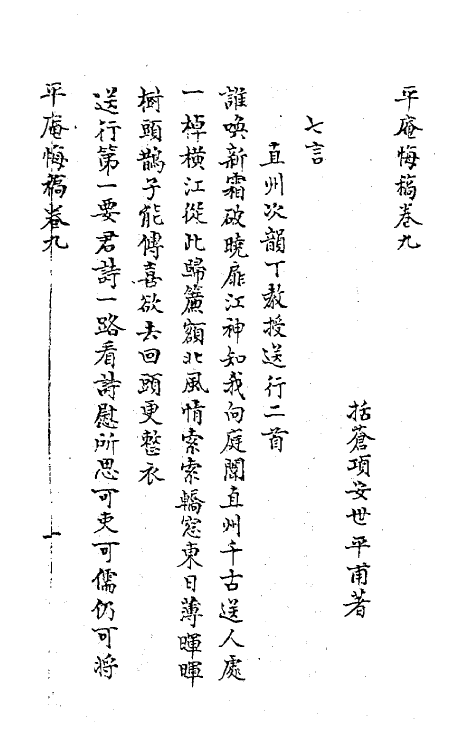 平庵悔稿卷九
括蒼項安世平甫著
七言
直州次韻丁教授送行二首
誰喚新霜破曉扉江神知我向庭闈直州千古送人處
一棹橫江從此歸簷額北風情索索轎窓東日薄暉暉
樹頭鵲子能傳喜欲去回頭更整衣
送行第一要君詩一路看詩慰所思可吏可儒仍可將
平庵悔稿卷九
一